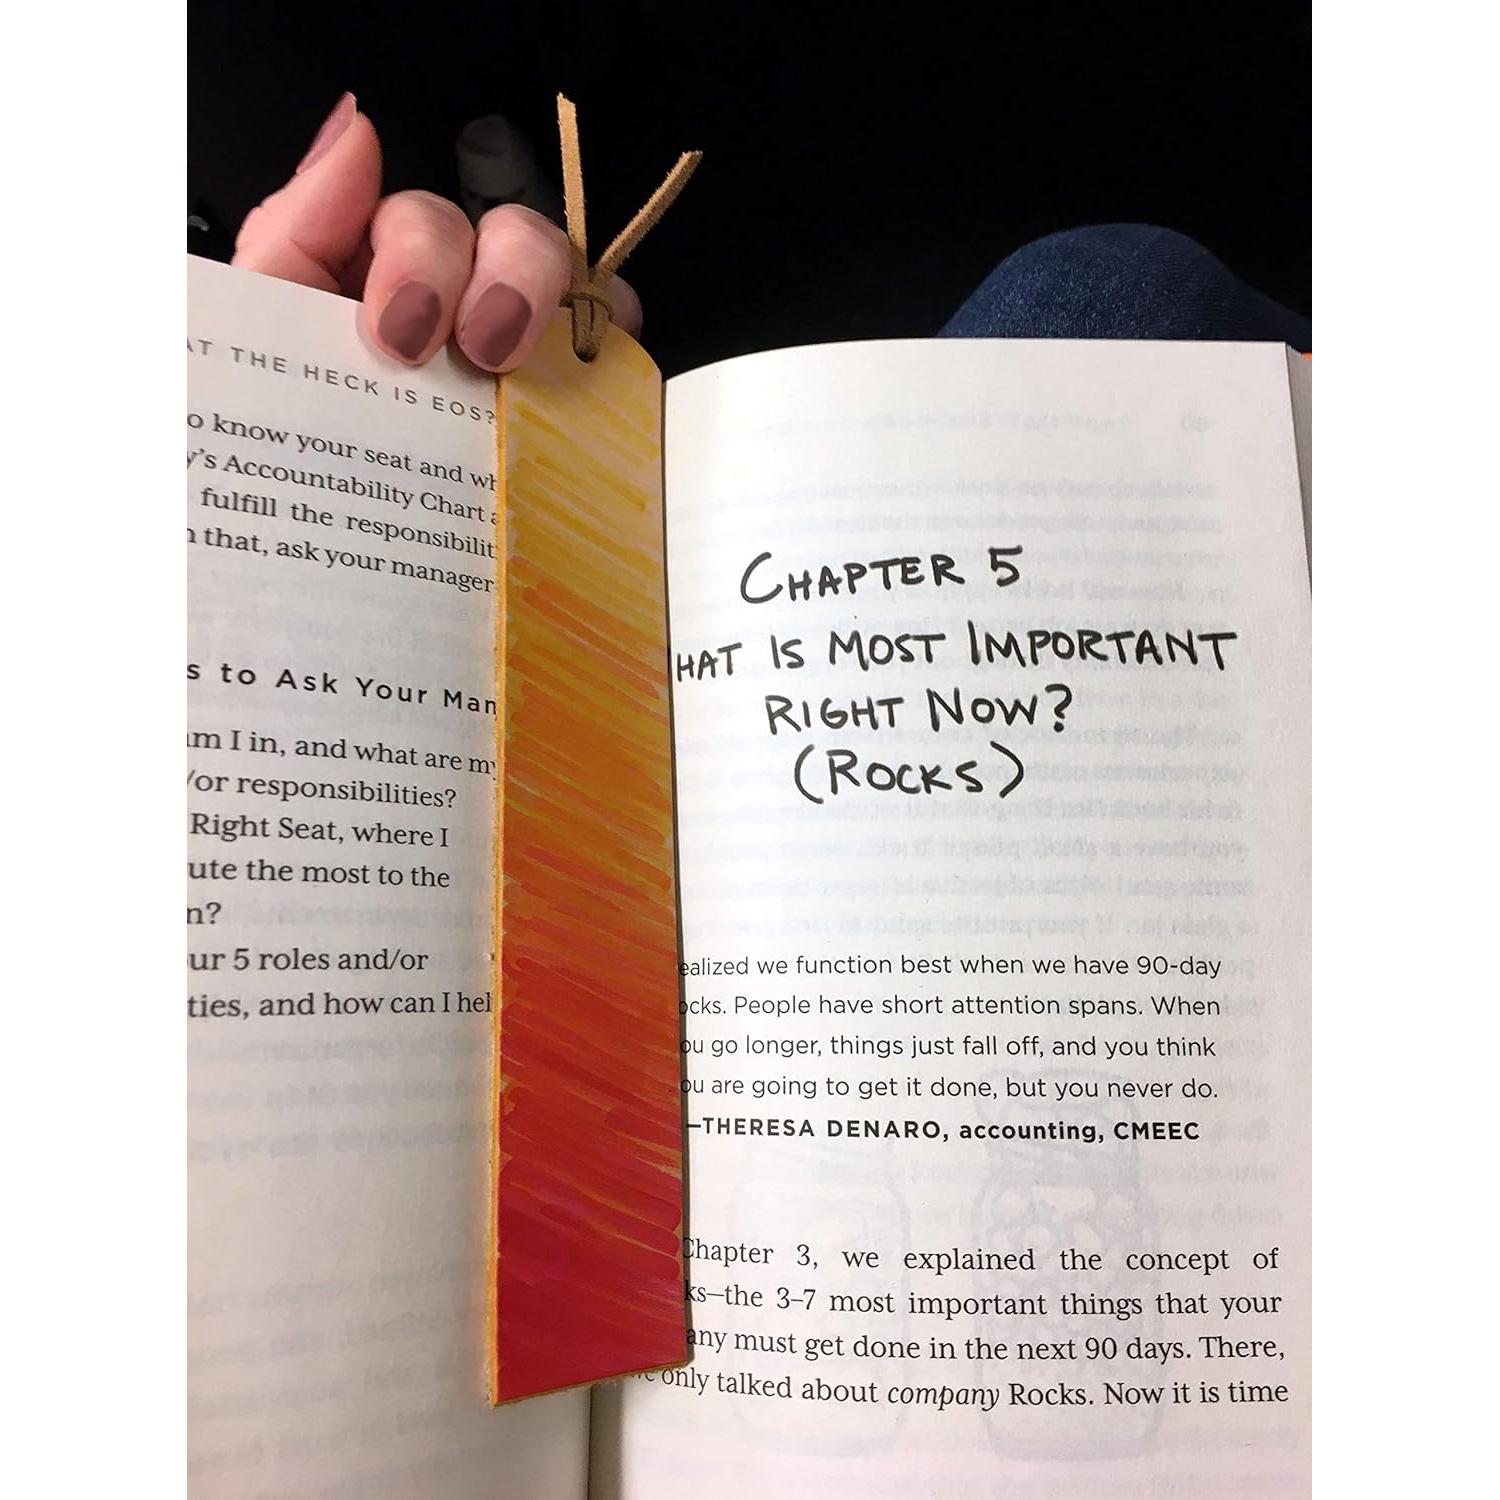 AT THE HECK IS EOS?
o know your seat and wh
y's Accountability Chart a
fulfill the responsibilit
n that, ask your manager
s to Ask Your Man
am I in, and what are my
/or responsibilities?
Right Seat, where I
ute the most to the
n?
ur 5 roles and/or
ties, and how can I hel
CHAPTER 5
HAT IS MOST IMPORTANT
RIGHT NOW?
(ROCKS)
ealized we function best when we have 90-day
ocks. People have short attention spans. When
ou go longer, things just fall off, and you think
ou are going to get it done, but you never do.
—THERESA DENARO, accounting, CMEEC
Chapter 3, we explained the concept of
ks—the 3–7 most important things that your
any must get done in the next 90 days. There,
only talked about company Rocks. Now it is time